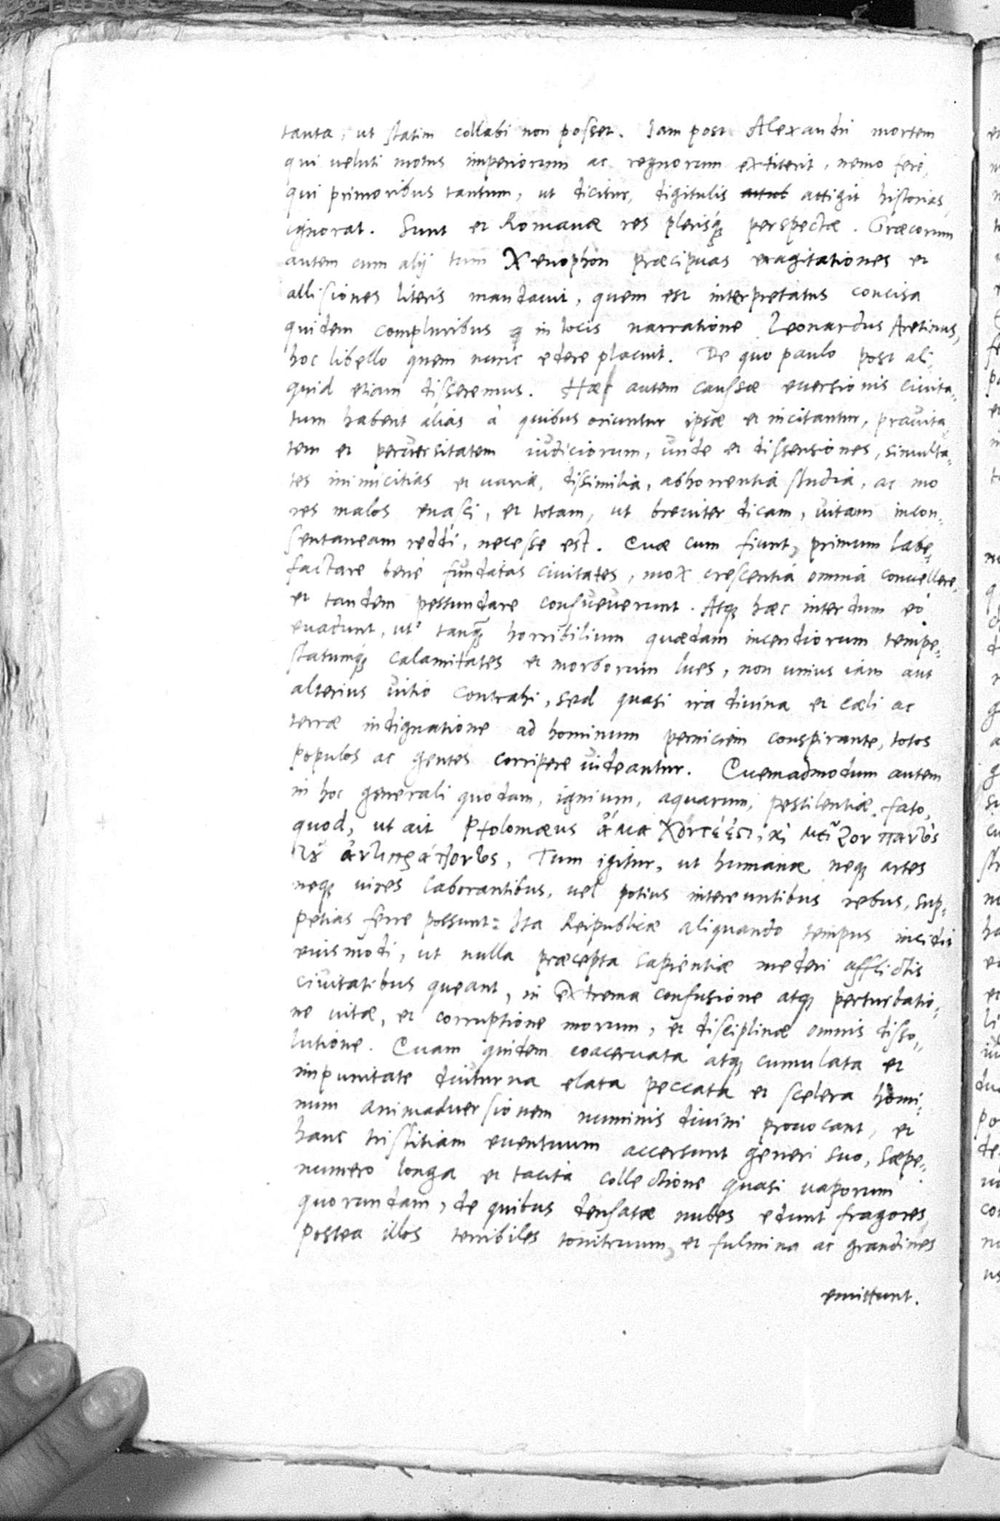 tanta, ut statim collabi non posset. Iam post Alexandri mortem
qui veluti motus imperiorum ac regnorum extiterit, nemo fere,
qui primoribus tantum, ut dicitur, digitulis attigit historias,
ignorat. Sunt et Romanæ res plerisq́ꝫ perspectæ. Græcorum
autem cum alij tum Xenophon præcipuas exagitationes et
allisiones literis mandavit, quem est interpretatus concisa
quidem compluribus in locis narratione Leonardus Aretinus,
hoc libello quem nunc edere placuit. De quo paulo post ali„
quid etiam disseremus. Hæ autem caussæ eversionis civita„
tum habent alias à quibus oriuntur ipsæ et incitantur, pravita„
tem et perversitatem iudiciorum, unde et dissensiones, simulta„
tes inimicitias et varia, dissimilia, abhorrentia studia, ac mo
res malos enasci, et totam, ut breviter dicam, vitam incon„
sentaneam reddi, necesse est. Cuæ cum fiunt, primum labe„
factare bene fundatas civitates, mox crescentia omnia convellere,
et tandem pessundare consueverunt. Atqꝫ hæc interdum eò
evadunt, ut tanqꝫ horribilium quædam incendiorum tempe„
statumqꝫ calamitates et morborum lues, non unius iam aut
alterius vitio contrahi, sed quasi ira divina et cæli ac
terræ indignatione ad hominum perniciem conspirante, totos
populos ac gentes corripere videantur. Cuemadmodum autem
in hoc generali quodam, ignium, aquarum, pestilentiæ fato,
quod, ut ait Ptolomæus ἅμα
Tum igitur, ut humanæ neqꝫ artes
neqꝫ vires laborantibus, vel potius intereuntibus rebus, sup„
petias ferre possunt: Ita Reipublicæ aliquando tempus incidit
eiusmodi, ut nulla præcepta sapientiæ mederi afflictis
civitatibus queant, in extrema confusione atqꝫ perturbatio„
ne vitæ, et corruptione morum, et disciplinæ omnis disso„
lutione. Cuam quidem coacervata atqꝫ cumulata et
impunitate diuturna elata peccata et scelera homi„
num animadversionem numinis divini provocant, et
hanc tristitiam eventuum accersunt generi suo, sæpe„
numero longa et tacita collectione quasi vaporum
quorundam, de quibus densatæ nubes edunt fragores,
postea illos terribiles tonitruum, et fulmina ac grandines
emittunt.